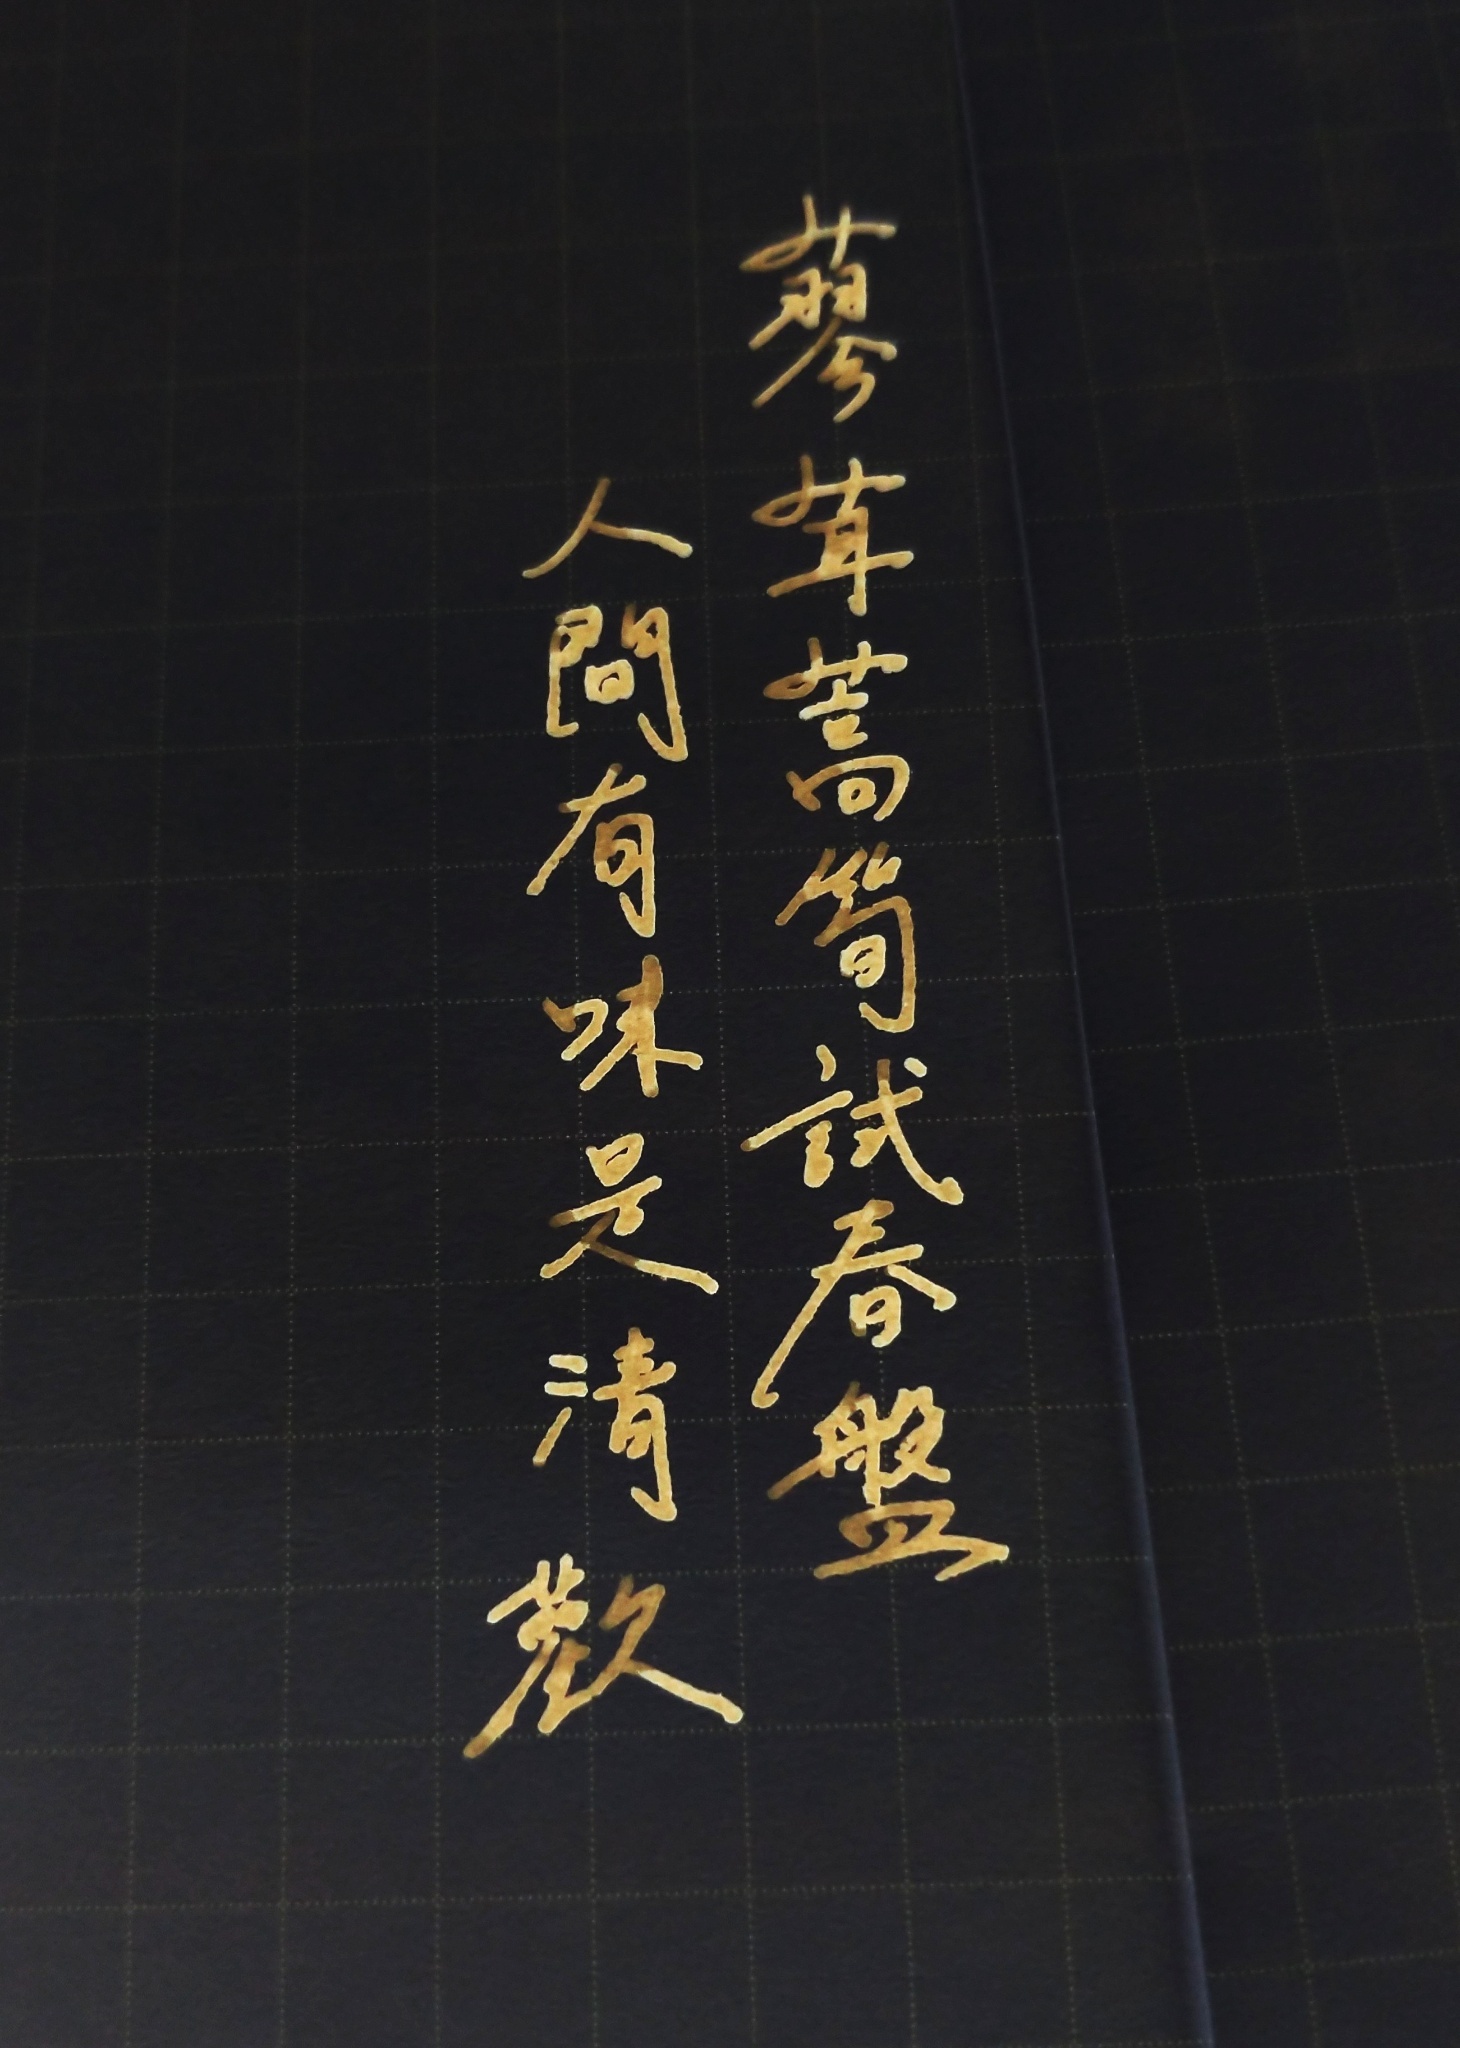 蓼茸蒿筍試春盤
人間有味是清歡